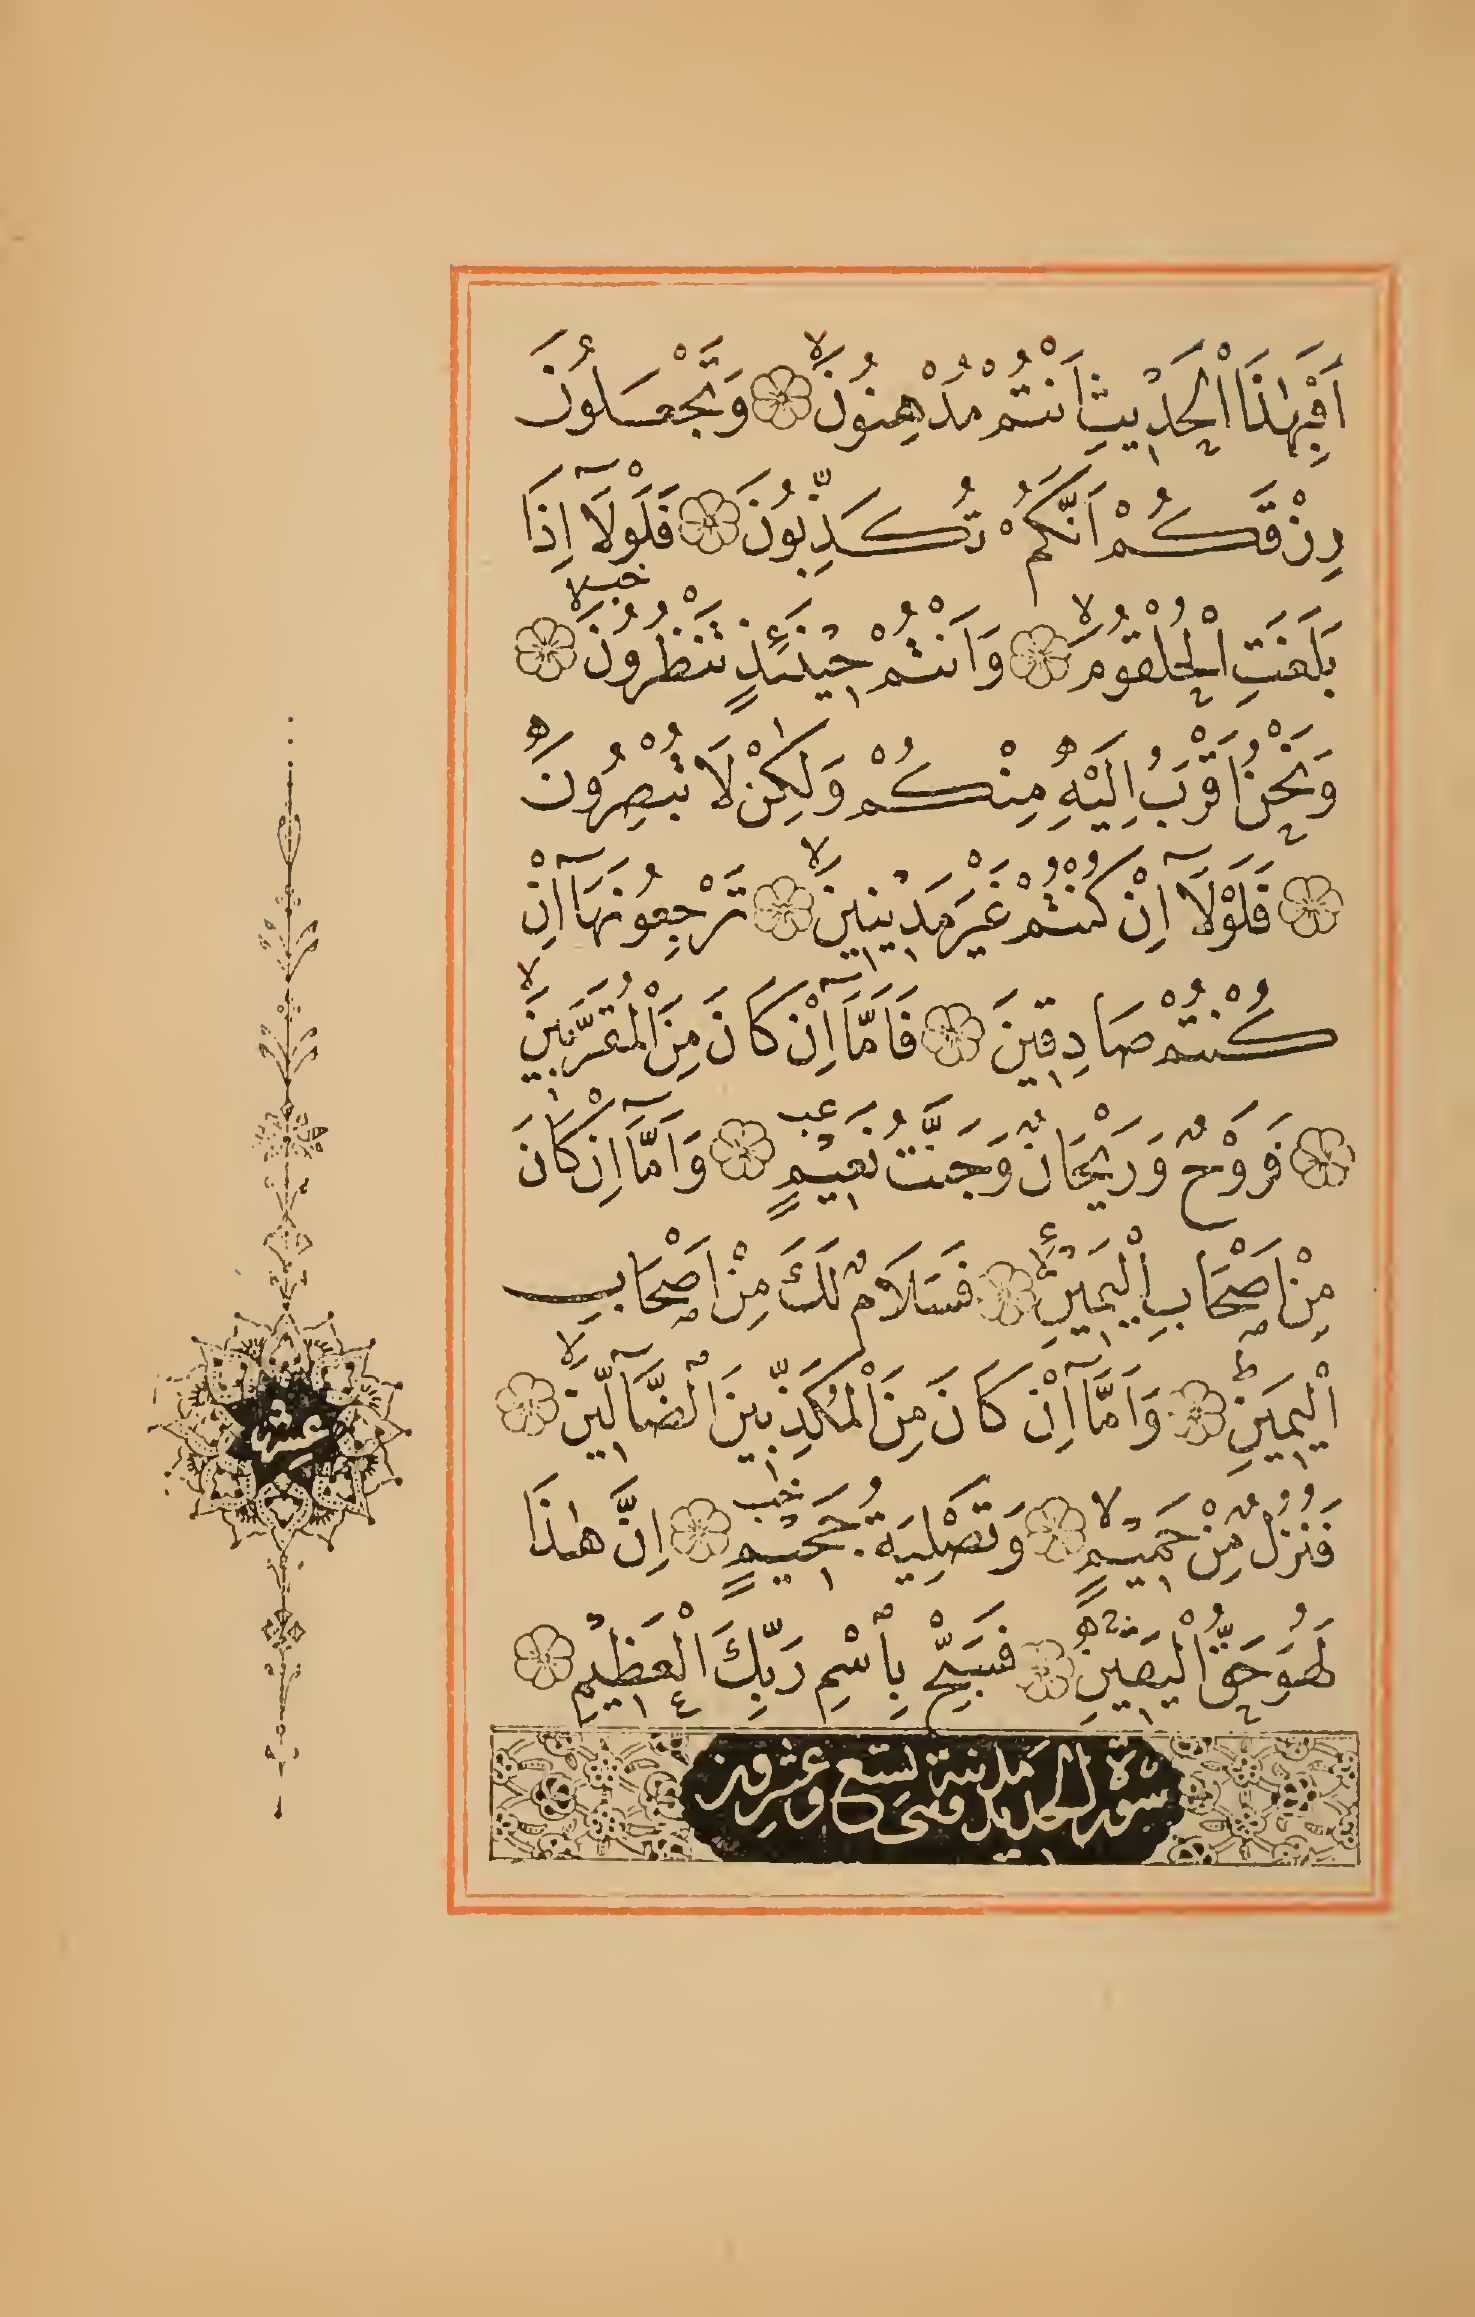 اَفَبِهٰذَا الْحَدِيثِ اَنْتُمْ مُدْهِنُونَۙ وَتَجْعَلُونَ
رِزْقَكُمْ اَنَّكُمْ تُكَذِّبُونَ فَلَوْلَٓا اِذَا
بَلَغَتِ الْحُلْقُومَۙ وَاَنْتُمْ حِينَئِذٍ تَنْظُرُونَۙ
وَنَحْنُ اَقْرَبُ اِلَيْهِ مِنْكُمْ وَلٰكِنْ لَا تُبْصِرُونَ
فَلَوْلَٓا اِنْ كُنْتُمْ غَيْرَ مَدِينِينَۙ تَرْجِعُونَهَٓا اِنْ
كُنْتُمْ صَادِقِينَ فَاَمَّٓا اِنْ كَانَ مِنَ الْمُقَرَّبِينَۙ
فَرَوْحٌ وَرَيْحَانٌ وَجَنَّتُ نَعِيمٍ وَاَمَّٓا اِنْ كَانَ
مِنْ اَصْحَابِ الْيَمِينِۙ فَسَلَامٌ لَكَ مِنْ اَصْحَابِ
الْيَمِينِۜ وَاَمَّٓا اِنْ كَانَ مِنَ الْمُكَذِّبِينَ الضَّٓالِّينَۙ
فَنُزُلٌ مِنْ حَمِيمٍۙ وَتَصْلِيَةُ جَحِيمٍ اِنَّ هٰذَا
لَهُوَ حَقُّ الْيَقِينِ فَسَبِّحْ بِاسْمِ رَبِّكَ الْعَظِيمِ
سورة الحديد مدنية وهى تسع وعشرون
عشر